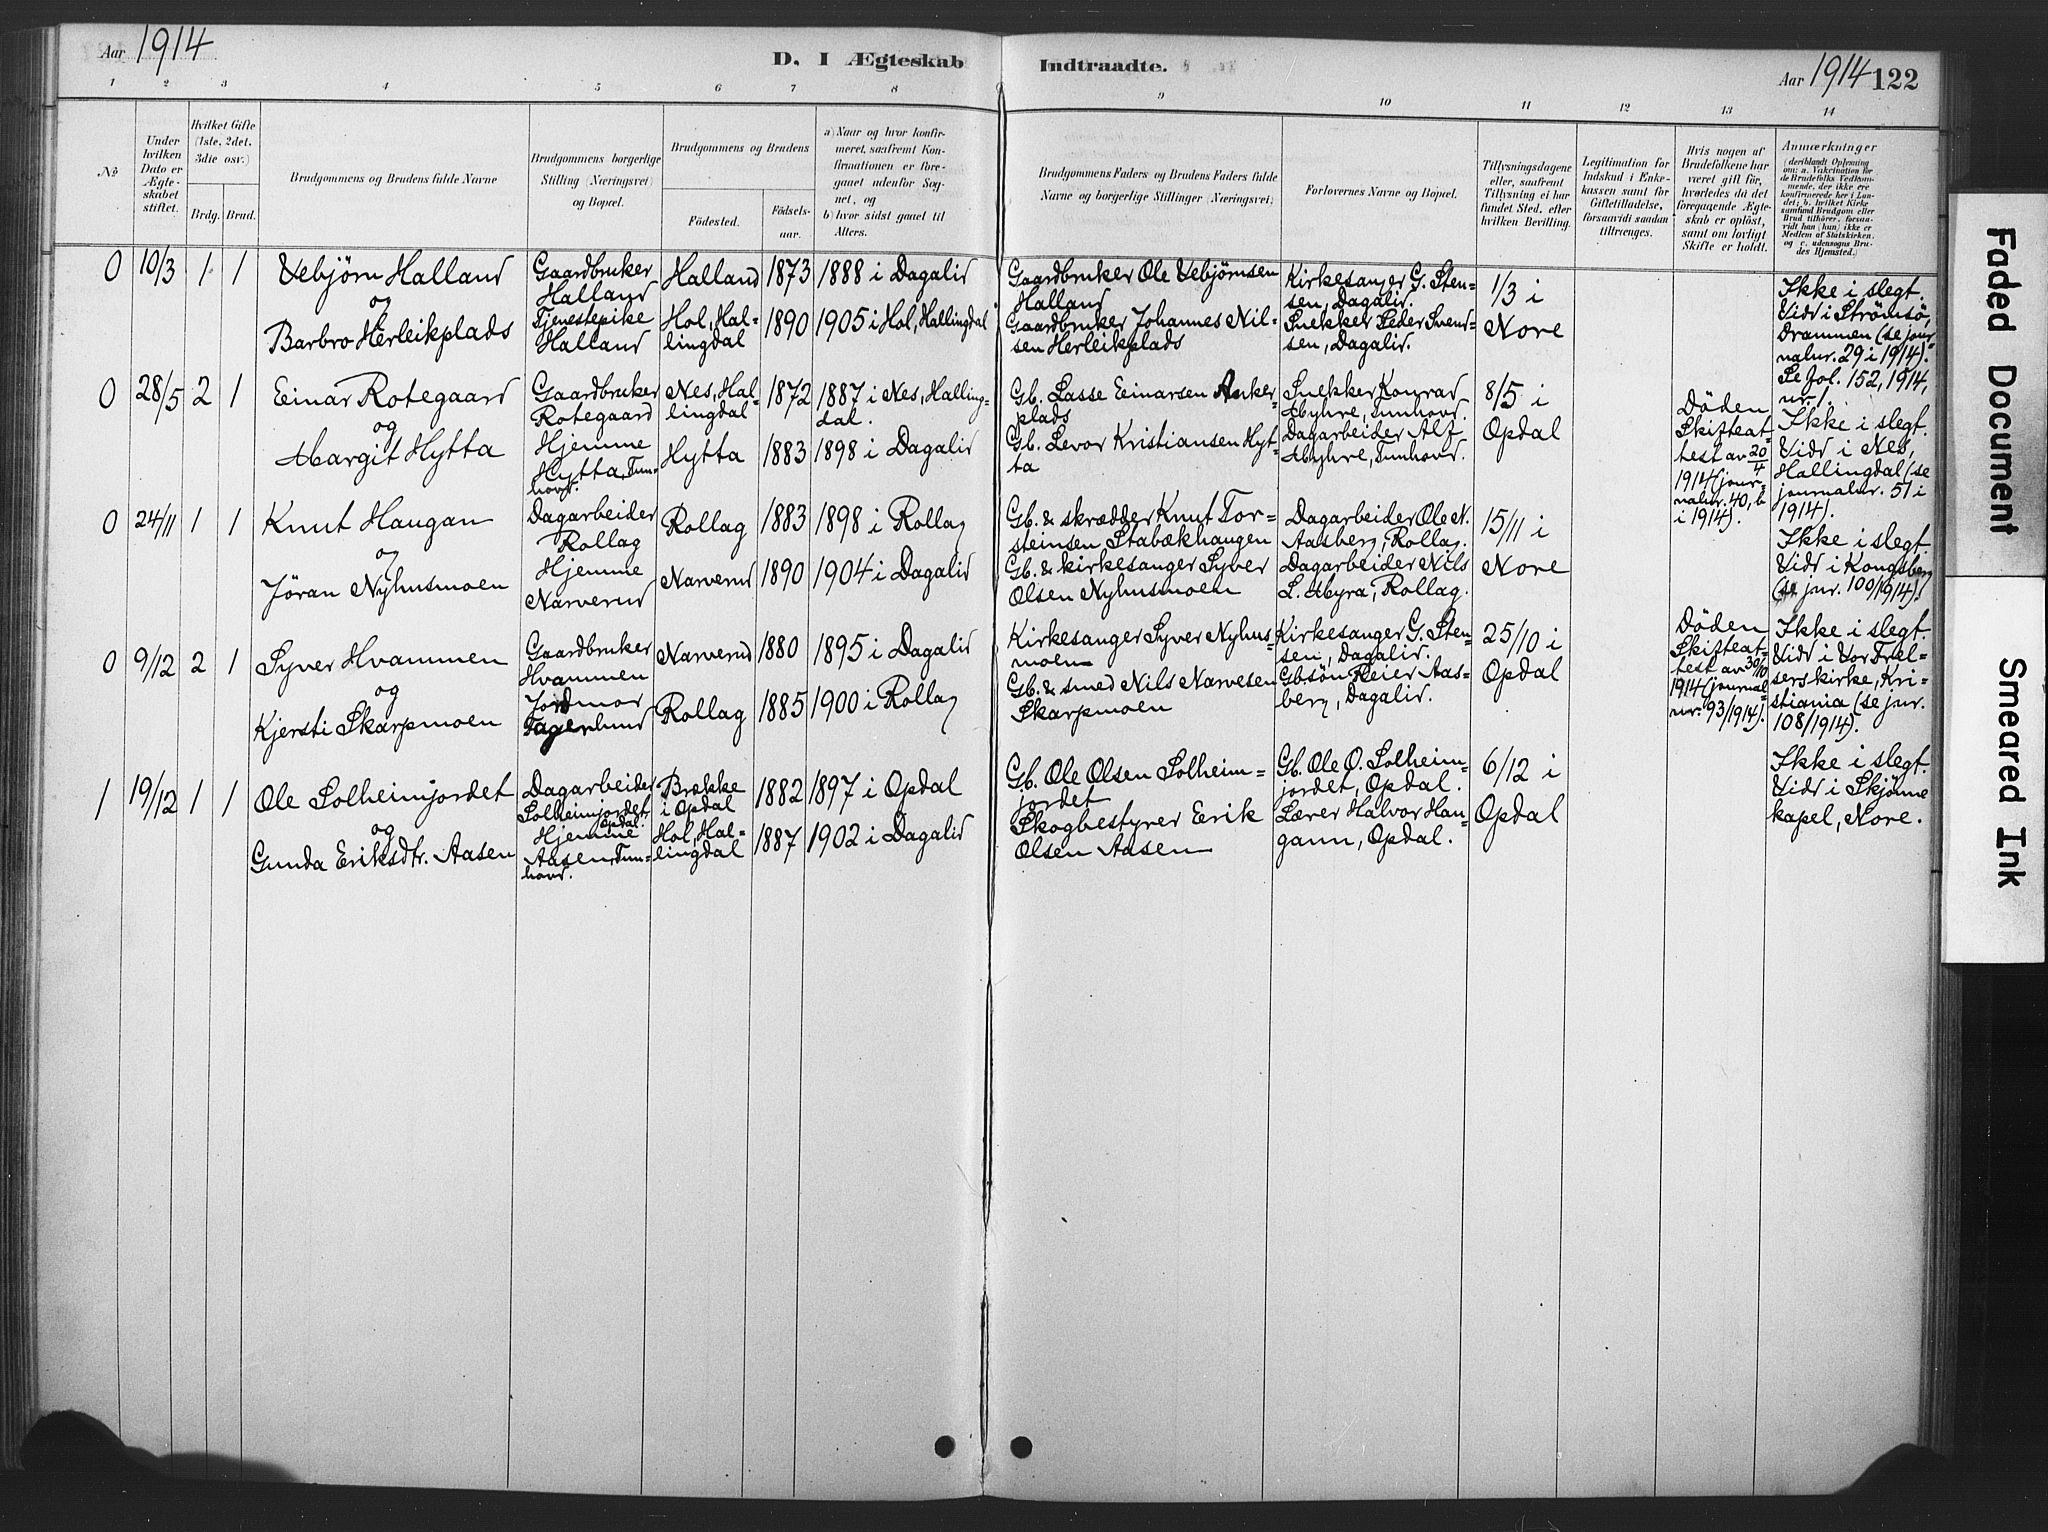 Aar 1914
D. I Ægteskab Indtraadte.
Aar 1914 122
1 2 3 4 5 6 7 8 9 10 11 12 13 14
No
Under hvilken Dato er Ægteskabet stiftet.
Hvilket Gifte (1ste, 2det, 3die osv.)
Brdg. Brud.
Brudgommens og Brudens fulde Navne
Brudgommens borgerlige Stilling (Næringsvei) og Bopæl.
Brudgommens og Brudens
Fødested.
Fødselsaar.
a) Naar og hvor konfirmeret, saafremt Konfirmationen er foregaaet udenfor Sognet, og
b) hvor sidst gaaet til Alters.
Brudgommens Faders og Brudens Faders fulde Navne og borgerlige Stillinger (Næringsvei)
Forlovernes Navne og Bopæl.
Tillysningsdagene eller, saafremt Tillysning ei har fundet Sted, efter hvilken Bevilling.
Legitimation for Indskud i Enkekassen samt for Giftetilladelse, forsaavidt saadan tiltrænges.
Hvis nogen af Brudefolkene har været gift før, hvorledes da det foregaaende Ægteskab er opløst, samt om lovligt Skifte er holdt.
Anmærkninger
(deriblandt Oplysning om: a. Vakcination for de Brudefolks Vedkommende, der ikke ere konfirmerede her i Landet; b. hvilket Kirkesamfund Brudgom eller Brud tilhører, forsaavidt han (hun) ikke er Medlem af Statskirken, og c. udensogns Brudes Hjemsted.)
0 10/3 1 1
Vebjørn Halland
og
Barbro Herleikplads
Gaardbruker
Halland
Tjenestepike
Halland
Halland
Hol, Hal-
lingdal
1873
1890
1888 i Dagalid
1905 i Hol, Hallingdal
Gaardbruker Ole Vebjørnsen
Halland
Gaardbruker Johannes Nil-
sen Herleikplads
Kirkesanger G. Sten-
sen, Dagalid.
Snekker Peder Svend-
sen, Dagalid.
1/3 i
Nore
Ikke i slegt.
Vidr i Strømsø,
Drammen (se jour-
nalnr. 29 i 1914).
Se fol. 152, 1914,
nr. 1.
0 28/5 2 1
Einar Rotegaard
og
Margit Hytta
Gaardbruker
Rotegaard
Hjemme
Hytta, Tun-
hovd.
Nes, Hal-
lingdal
Hytta
1872
1883
1887 i Nes, Halling-
dal.
1898 i Dagalid
Gb. Lasse Einarsen Anker-
plads
Gb. Levor Kristiansen Hyt-
ta
Snekker Konrad
Myhre, Tunhovd.
Dagarbeider Alf
Myhre, Tunhovd.
8/5 i
Opdal
Døden
Skifteat-
test av 20/4
1914 (jour-
nalnr. 40, b
i 1914).
Ikke i slegt.
Vidr i Nes,
Hallingdal (se
journalnr. 51 i
1914).
0 24/11 1 1
Knut Haugan
og
Jøran Nyhusmoen
Dagarbeider
Rollag
Hjemme
Narverud
Rollag
Narverud
1883
1890
1898 i Rollag
1904 i Dagalid
Gb. & skrædder Knut Tor-
steinsen Stabækhaugen
Gb. & kirkesanger Syver
Olsen Nyhusmoen
Dagarbeider Ole N.
Aasberg, Rollag.
Dagarbeider Nils
L. Myra, Rollag.
15/11 i
Nore
Ikke i slegt.
Vidr i Kongsberg
(se jnr. 100/1914).
0 9/12 2 1
Syver Hvammen
og
Kjersti Skarpmoen
Gaardbruker
Hvammen
Jordmor
Fagerlund
Narverud
Rollag
1880
1885
1895 i Dagalid
1900 i Rollag
Kirkesanger Syver Nyhus-
moen
Gb. & smed Nils Narvesen
Skarpmoen
Kirkesanger G. Sten-
sen, Dagalid.
Gbsøn Reier Aas-
berg, Dagalid.
25/10 i
Opdal
Døden
Skifteat-
test av 30/10
1914 (journal-
nr. 93/1914).
Ikke i slegt.
Vidr i Vor Frel-
serskirke, Kri-
stiania (se jnr.
108/1914).
1 19/12 1 1
Ole Solheimjordet
og
Gunda Eriksdtr. Aasen
Dagarbeider
Solheimjordet,
Opdal.
Hjemme
Aasen, Tun-
hovd.
Brække
i Opdal
Hol, Hal-
lingdal
1882
1887
1897 i Opdal
1902 i Dagalid
Gb. Ole Olsen Solheim-
jordet
Skogbestyrer Erik
Olsen Aasen
Gb. Ole O. Solheim-
jordet, Opdal.
Lærer Halvor Hau-
gann, Opdal.
6/12 i
Opdal
Ikke i slegt.
Vidr i Skjønne
kapel, Nore.
Faded Document
Smeared Ink